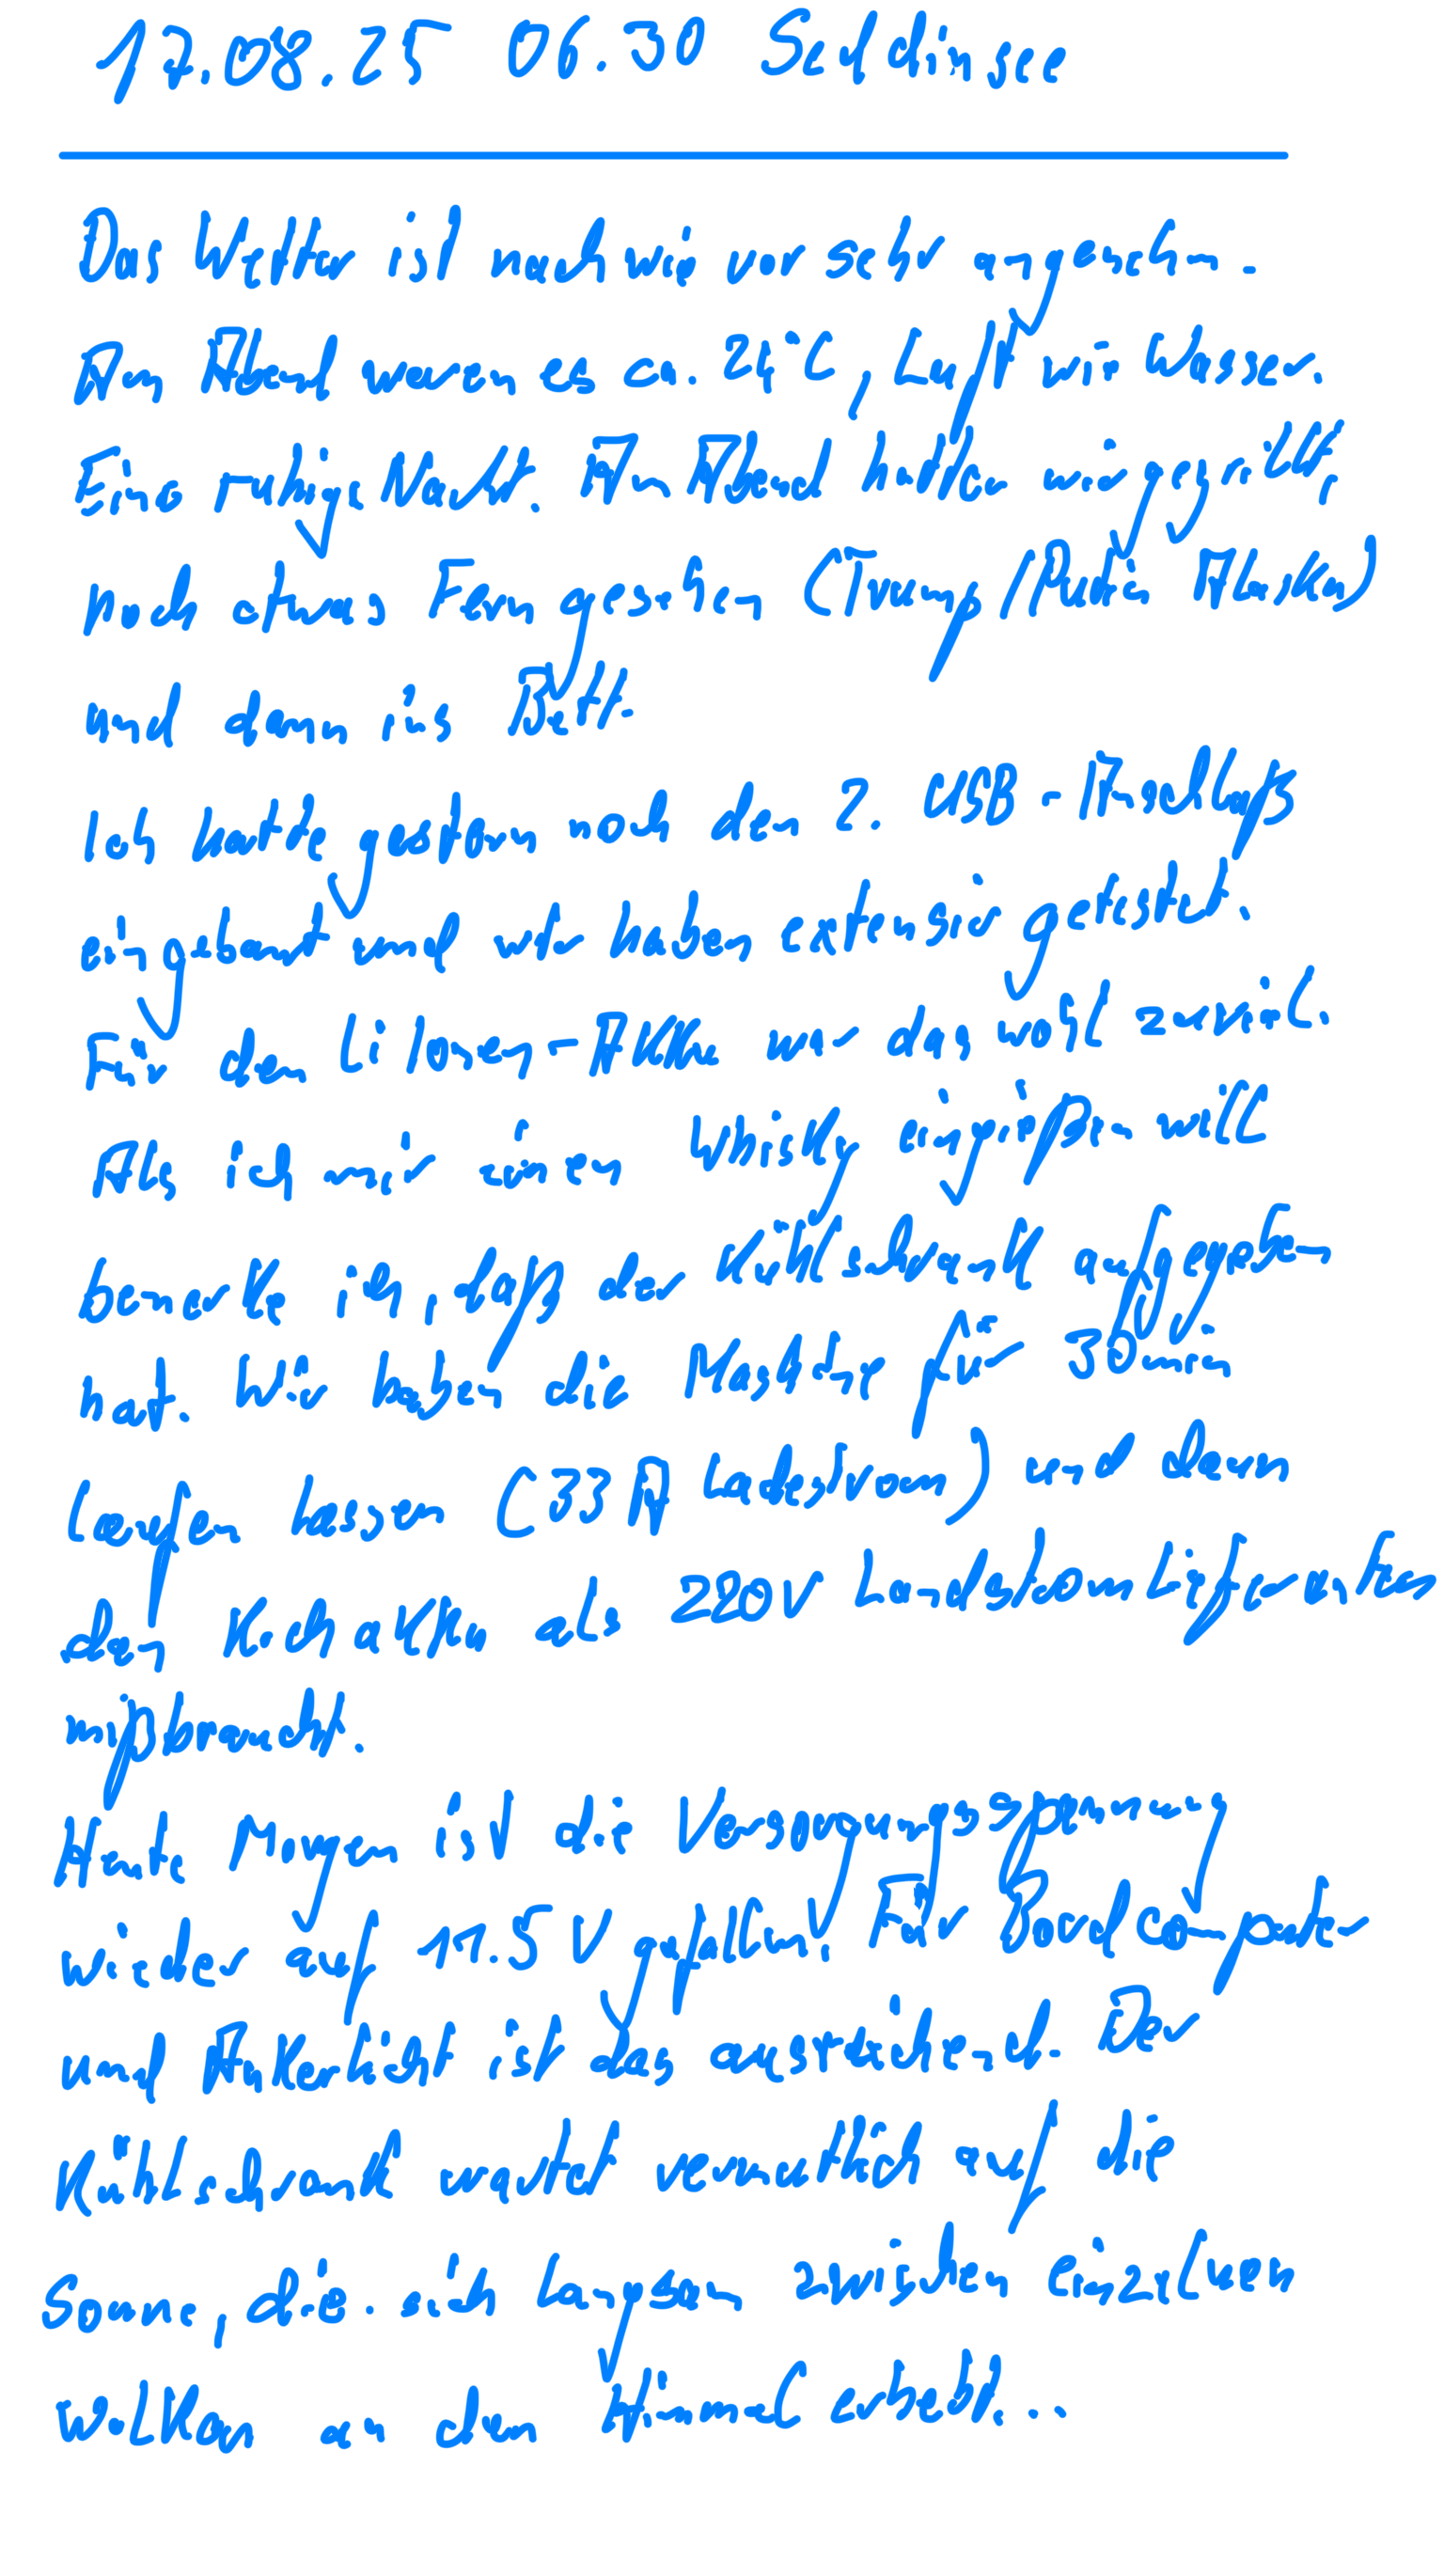 17.08.25 06.30 Seddinsee
Das Wetter ist nach wie vor sehr angenehm.
Am Abend waren es ca. 24°C, Luft wie Wasser.
Eine ruhige Nacht. Am Abend hatten wir gegrillt,
noch etwas Fern gesehen (Trump/Putin Alaska)
und dann ins Bett.
Ich hatte gestern noch den 2. USB-Anschluß
eingebaut und wir haben extensiv getestet.
Für den Lilonen-Akku war das wohl zuviel.
Als ich mir einen Whisky eingießen will
bemerke ich, daß der Kühlschrank aufgegeben
hat. Wir haben die Maschine für 30min
laufen lassen (33A Ladestrom) und dann
den Kochakku als 220V Landstromlieferanten
mißbraucht.
Heute Morgen ist die Versorgungsspannung
wieder auf 11.5V gefallen. Für Bordcomputer
und Ankerlicht ist das ausreichend. Der
Kühlschrank wartet vermutlich auf die
Sonne, die sich langsam zwischen einzelnen
Wolken an den Himmel erhebt...